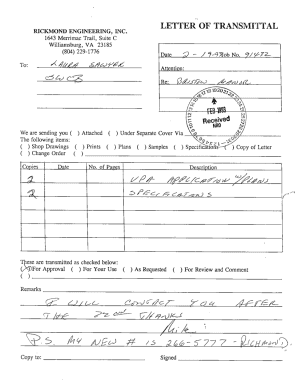 LETTER OF TRANSMITTAL
RICKMOND ENGINEERING, INC.
1643 Merrimac Trail, Suite C
Williamsburg, VA 23185
(804) 229-1776
Date 2-19-93 Job No. 91432
To: LAURA SAWYER
Attention:
Re: BRISTOW MANOR
FEB 1993
Received
We are sending you ( ) Attached ( ) Under Separate Cover Via
The following items:
( ) Shop Drawings ( ) Prints ( ) Plans ( ) Samples ( ) Specifications ( ) Copy of Letter
( ) Change Order ( )
Copies Date No. of Pages Description
2 VPA APPLICATION W/PLANS
2 SPECIFICATIONS
These are transmitted as checked below:
(X) For Approval ( ) For Your Use ( ) As Requested ( ) For Review and Comment
( )
Remarks
I WILL CONTACT YOU AFTER
THE 22nd THANKS
Mike
PS MY NEW # IS 266-5777 - RICHMOND
Copy to: Signed